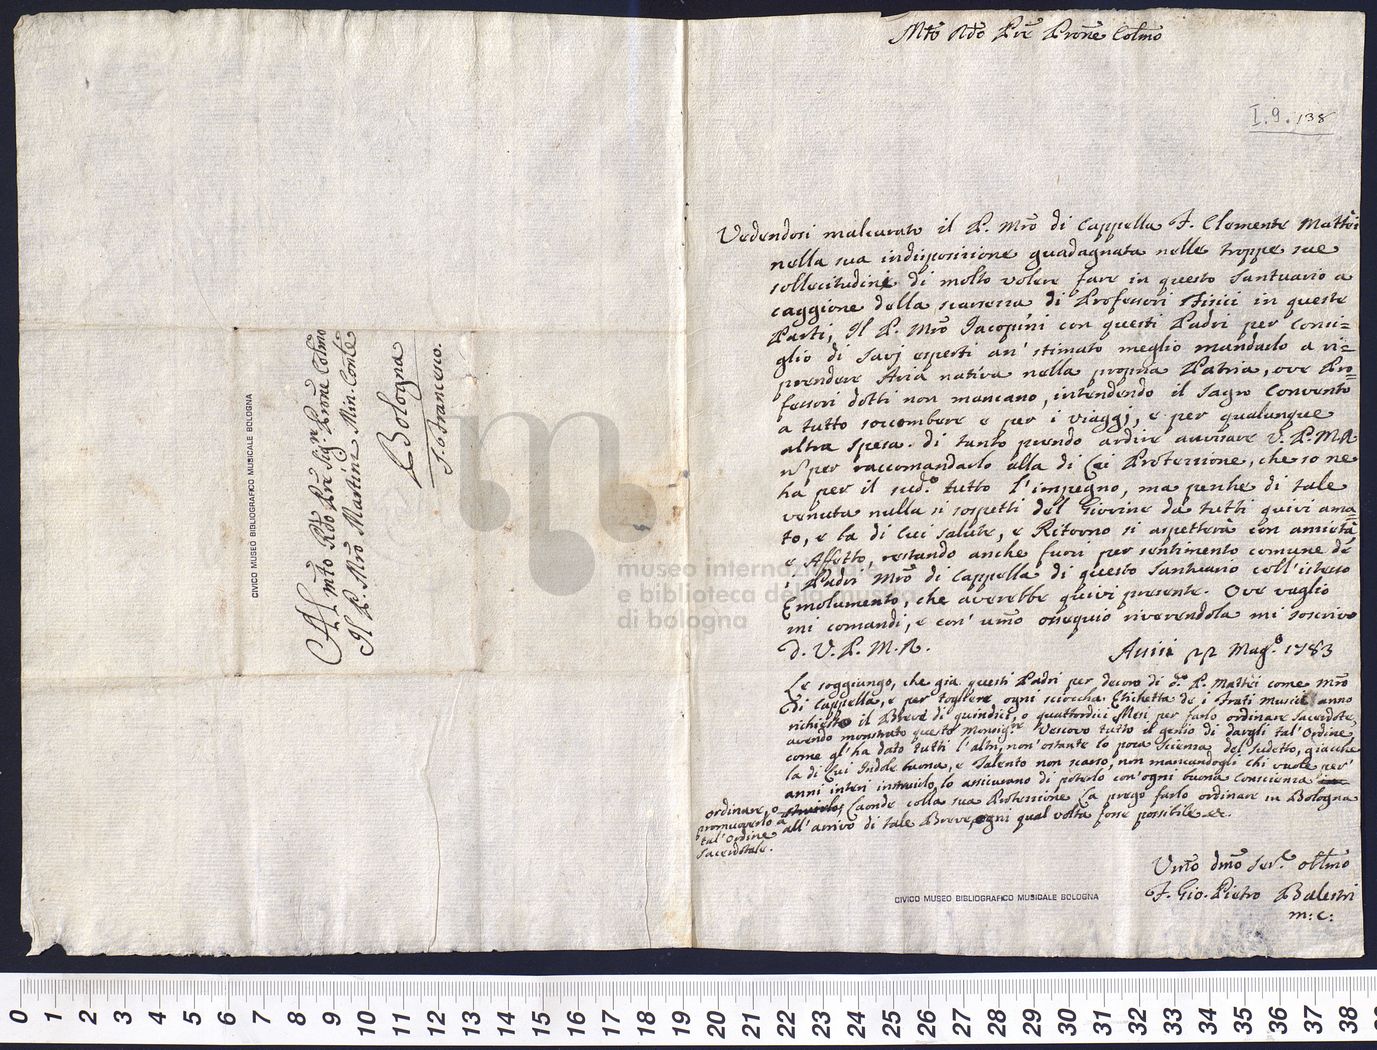 Mto Rdo Pre Prone Colmo
I.9.138
Vedendosi malcurato il P. Mro di Cappella F. Clemente Mattei
nella sua indisposizione guadagnata nelle troppe sue
sollecitudini di molto volere fare in questo Santuario a
caggione della scarsezza di Professori Fisici in queste
Parti, Il P. Mro Jacopini con questi Padri per consi=
glio di Savj esperti an' stimato meglio mandarlo a ri=
prendere Aria nativa nella propria Patria, ove Pro=
fessori dotti non mancano, intendendo il Sagro Convento
a tutto soccombere e per i viaggi, e per qualunque
altra spesa. di tanto prendo ardire avvisare V. P. M. R.
per raccomandarlo alla di Lei Protezzione, che so ne
ha per il sud.o tutto l'impegno, ma perche di tale
venuta nulla si sospetti del Giovine da tutti quivi ama=
to, e la di cui salute, e Ritorno si aspetterà con ansietà,
e Affetto, restando anche fuori per sentimento comune de
i Padri Mro di Cappella di questo Santuario coll'istesso
Emolumento, che averebbe quivi presente. Ove vaglio
mi comandi, e con' umo ossequio riverendola mi soscrivo
d. V. P. M. R.
Assisi 22 Mag.o 1783
Le soggiungo, che gia questi Padri per decoro di d.o P. Mattei come Mro
di Cappella, e per togliere ogni sciocha Etichetta de i Frati Musici anno
richiesto il Breve di quindici, o quattordici Mesi per farlo ordinare Sacerdote,
avendo monstrato questo Monsig.re Vescovo tutto il genio di dargli tal'Ordine,
come gl'ha dato tutti l'altri, non'ostante la poca scienza del sudetto, giacche
la di Lui Indole buona, e Talento non scarso, non mancandogli chi vuole per'
anni interi instruirlo, lo assicurano di poterlo con'ogni buona Conscienza
ordinare, o
promuoverlo a
tal'Ordine
Sacerdotale.
Laonde colla sua Protezzione La prego farlo ordinare in Bologna
all'arrivo di tale Breve, ogni qual volta fosse possibile &c.
Umo dmo Ser.e obblmo
F. Gio. Pietro Balestri
m: c:
Al Mto Rdo Pre Sigr. Prone Colmo
Il P. Mro Martini Min. Conle
Bologna
S. Francesco.
CIVICO MUSEO BIBLIOGRAFICO MUSICALE BOLOGNA
CIVICO MUSEO BIBLIOGRAFICO MUSICALE BOLOGNA
museo internazionale
e biblioteca della musica
di bologna
0 1 2 3 4 5 6 7 8 9 10 11 12 13 14 15 16 17 18 19 20 21 22 23 24 25 26 27 28 29 30 31 32 33 34 35 36 37 38